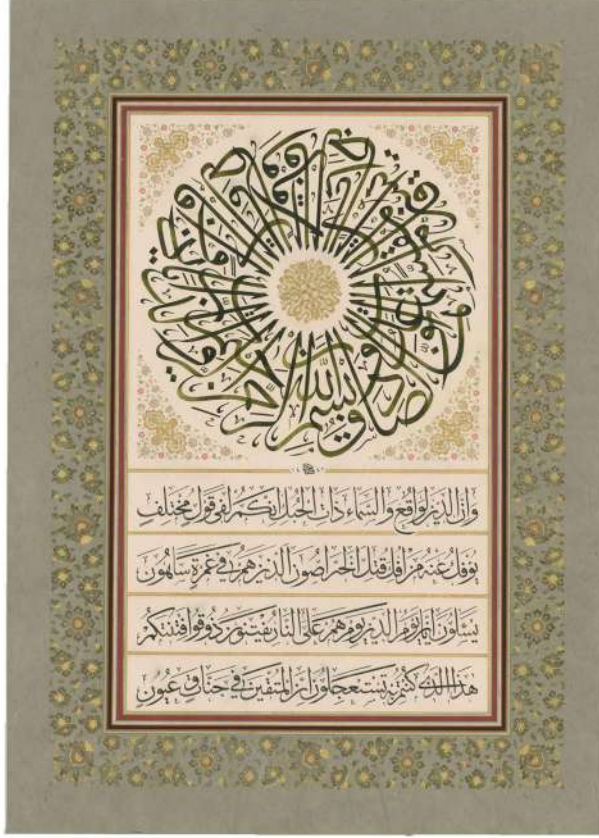 بسم الله الرحمن الرحيم والذاريات ذروا فالحاملات وقرا فالجاريات يسرا فالمقسمات أمرا إنما توعدون لصادق
وإن الدين لواقع والسماء ذات الحبك إنكم لفي قول مختلف
يؤفك عنه من أفك قتل الخراصون الذين هم في غمرة ساهون
يسئلون أيان يوم الدين يوم هم على النار يفتنون ذوقوا فتنتكم
هذا الذي كنتم به تستعجلون إن المتقين في جنات وعيون